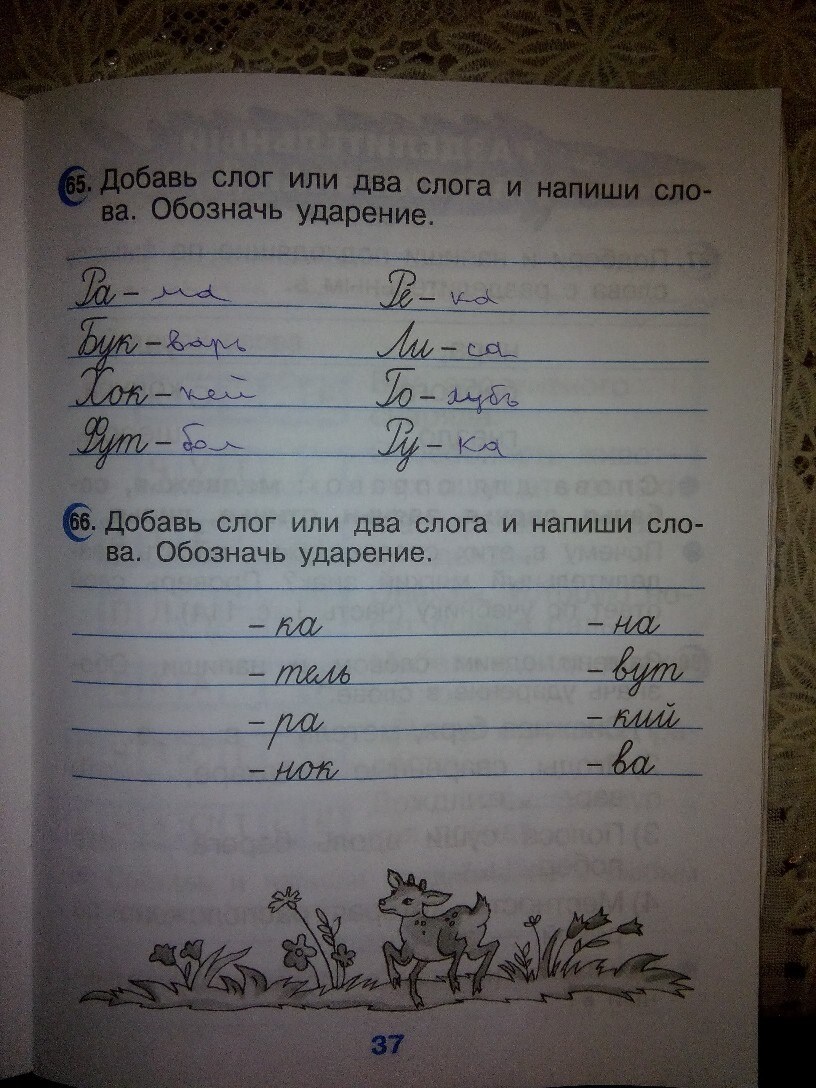 65. Добавь слог или два слога и напиши сло-
ва. Обозначь ударение.
Ра - ма Ре - ка
Бук - варь Ли - са
Хок - кей Го - лубь
Фут - бол Ру - ка
66. Добавь слог или два слога и напиши сло-
ва. Обозначь ударение.
- ка - на
- тель - вут
- ра - кий
- нок - ва
37